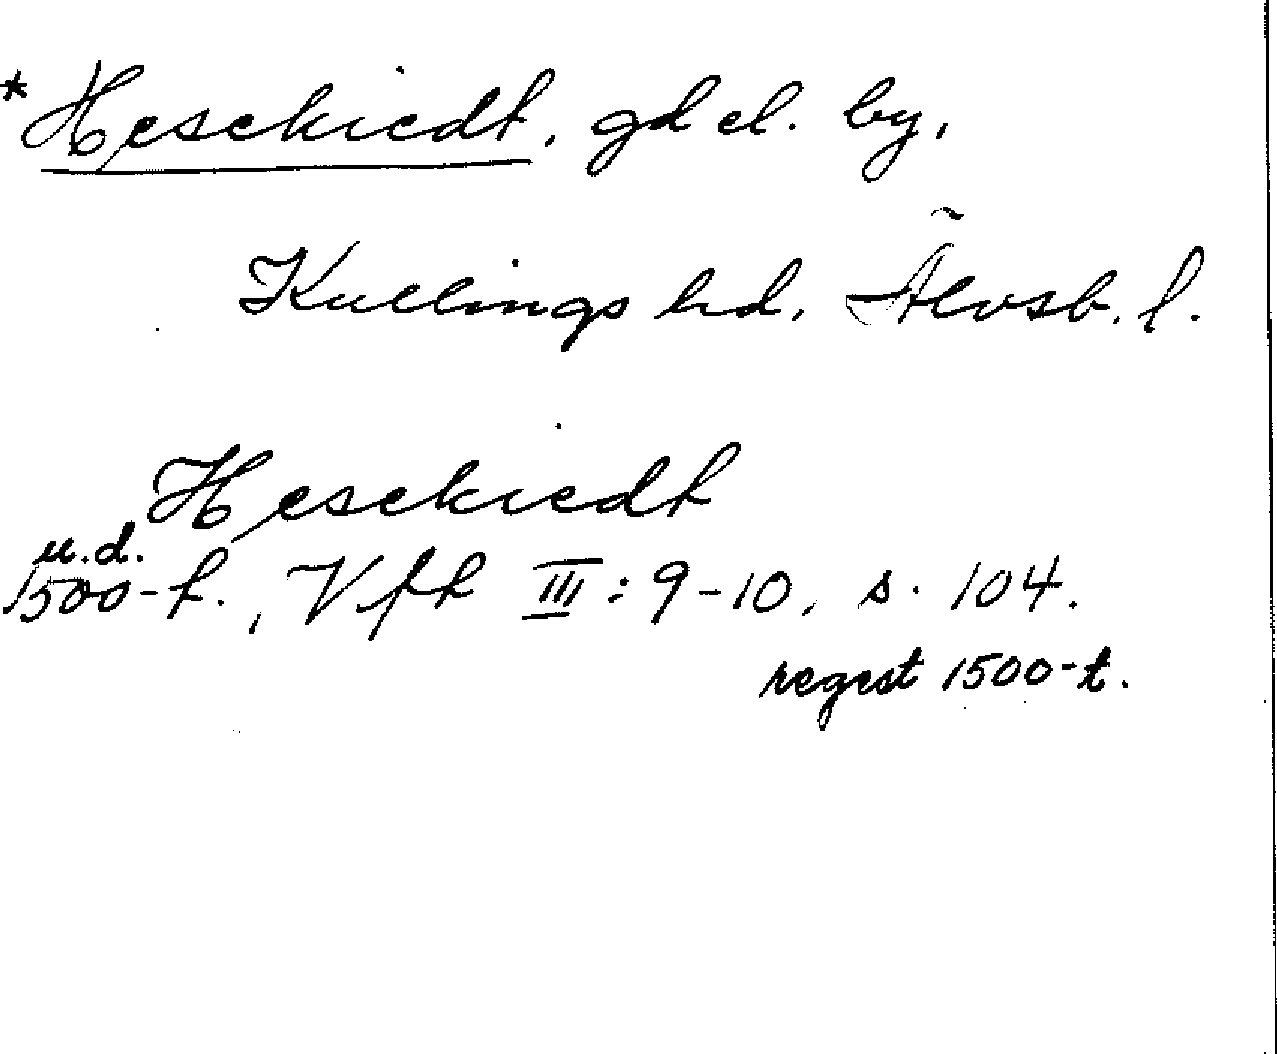 *Heseckiedt, gd el. by,
Kullings hd, Älvsb. l.
Heseckiedt
u.d.
1500-t., Vfh III: 9-10, s. 104.
regest 1500-t.